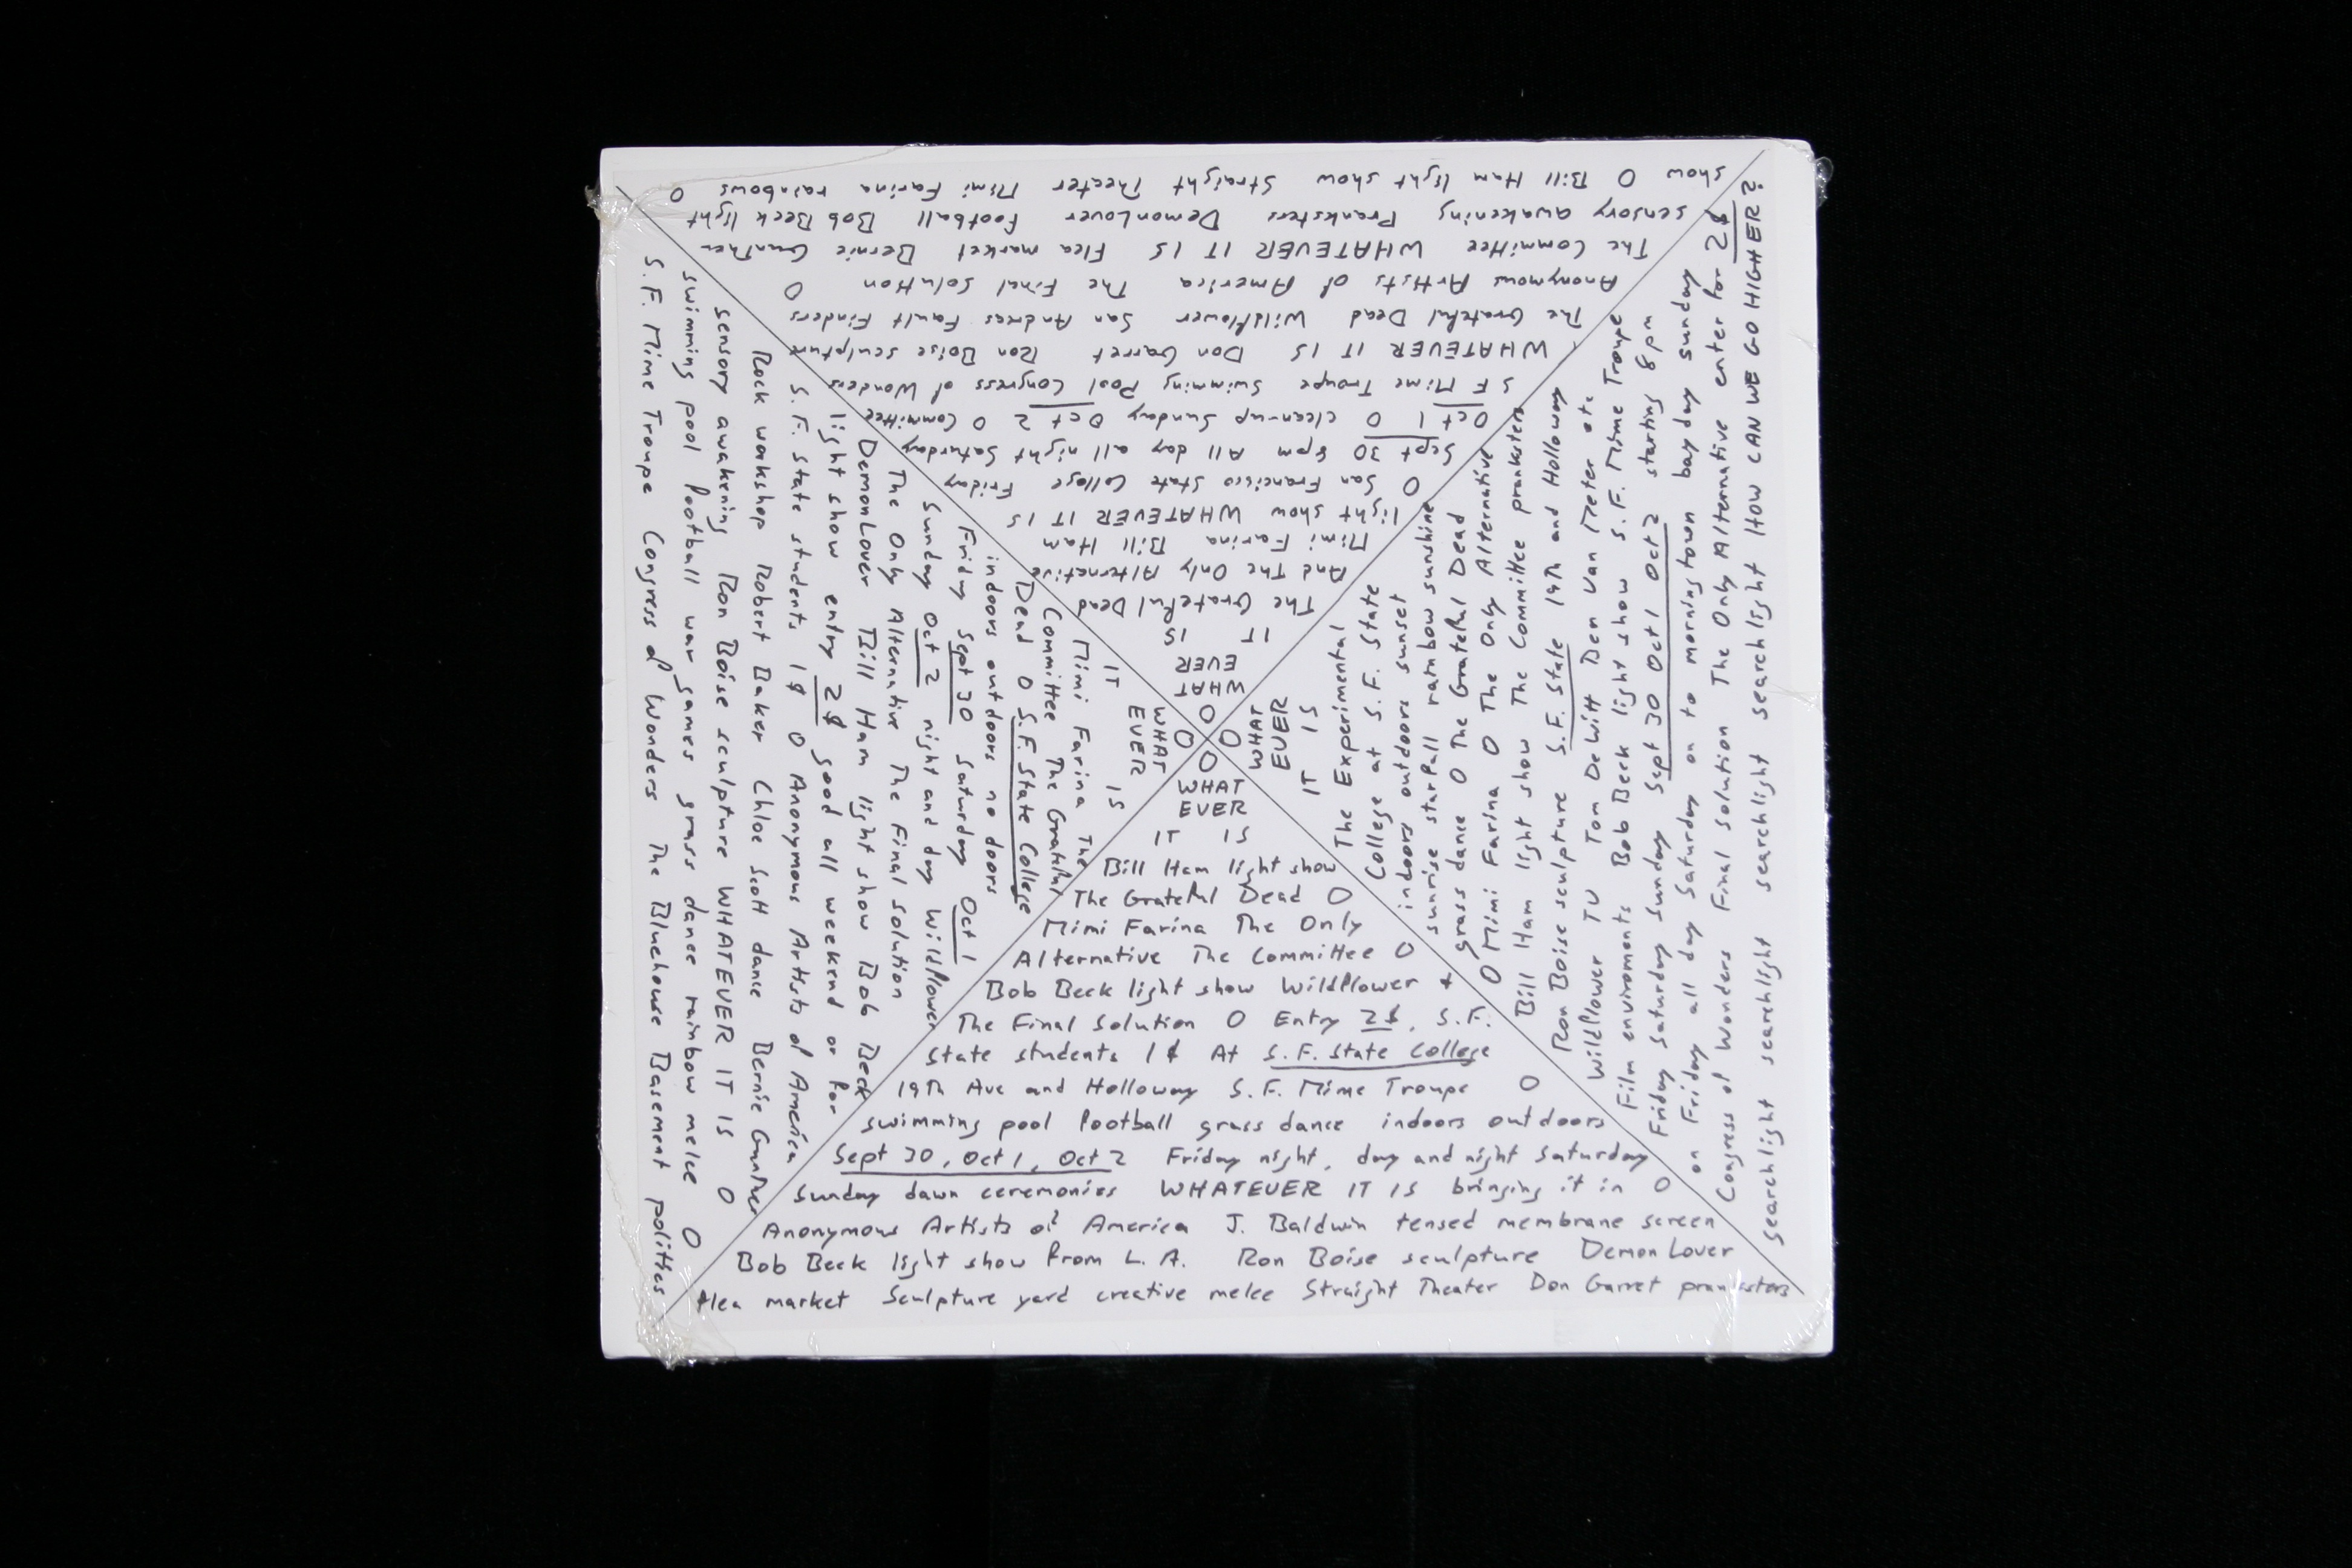 O
WHAT
EVER
IT IS
Bill Ham light show
The Grateful Dead O
Mimi Farina The Only
Alternative The Committee O
Bob Beck light show Wildflower +
The Final Solution O Entry 2$, S.F.
State students 1$ At S.F. State College
19th Ave and Holloway S.F. Mime Troupe O
swimming pool football grass dance indoors outdoors
Sept 30, Oct 1, Oct 2 Friday night, day and night Saturday
Sunday dawn ceremonies WHATEVER IT IS bringing it in O
Anonymous Artists of America J. Baldwin tensed membrane screen
Bob Beck light show from L.A. Ron Boise sculpture Demon Lover
flea market Sculpture yard creative melee Straight Theater Don Garret pranksters
O
WHAT
EVER
IT IS
Mimi Farina The
Committee The Grateful
Dead O S.F. State College
indoors outdoors no doors
Friday Sept 30 Saturday Oct 1
Sunday Oct 2 night and day Wildflower
The Only Alternative The Final Solution
Demon Lover Bill Ham light show Bob Beck
light show entry 2$ good all weekend or for
S.F. State students 1$ O Anonymous Artists of America
Rock workshop Robert Baker Chloe Scott dance Bernie Gunther
sensory awakening Ron Boise sculpture WHATEVER IT IS O
swimming pool football war games grass dance rainbow melee O
S.F. Mime Troupe Congress of Wonders The Bluehouse Basement politics
O
WHAT
EVER
IT IS
The Grateful Dead
And The Only Alternative
Mimi Farina Bill Ham
light show WHATEVER IT IS
O San Francisco State College Friday
Sept 30 8pm All day all night Saturday
Oct 1 O clean-up Sunday Oct 2 O Committee
S F Mime Troupe Swimming Pool Congress of Wonders
WHATEVER IT IS Don Garret Ron Boise sculpture
The Grateful Dead Wildflower San Andreas Fault Finders
Anonymous Artists of America The Final Solution O
The Committee WHATEVER IT IS Flea market Bernie Gunther
sensory awakening Pranksters Demon Lover Football Bob Beck light
show O Bill Ham light show Straight Theater Mimi Farina rainbows O
O
WHAT
EVER
IT IS
The Experimental
College at S.F. State
indoors outdoors sunset
sunrise starfall rainbow sunshine
grass dance O The Grateful Dead
O Mimi Farina O The Only Alternative
Bill Ham light show The Committee pranksters
Ron Boise sculpture S.F. State 19th and Holloway
Wildflower TV Tom DeWitt Ben Van Meter etc
Film enviroments Bob Beck light show S.F. Mime Troupe
Friday Saturday Sunday Sept 30 Oct 1 Oct 2 starting 8pm
on Friday all day Saturday on to morningtown bay day sunday
Congress of Wonders Final Solution The Only Alternative enter for 2$
searchlight searchlight searchlight searchlight searchlight How CAN WE GO HIGHER?